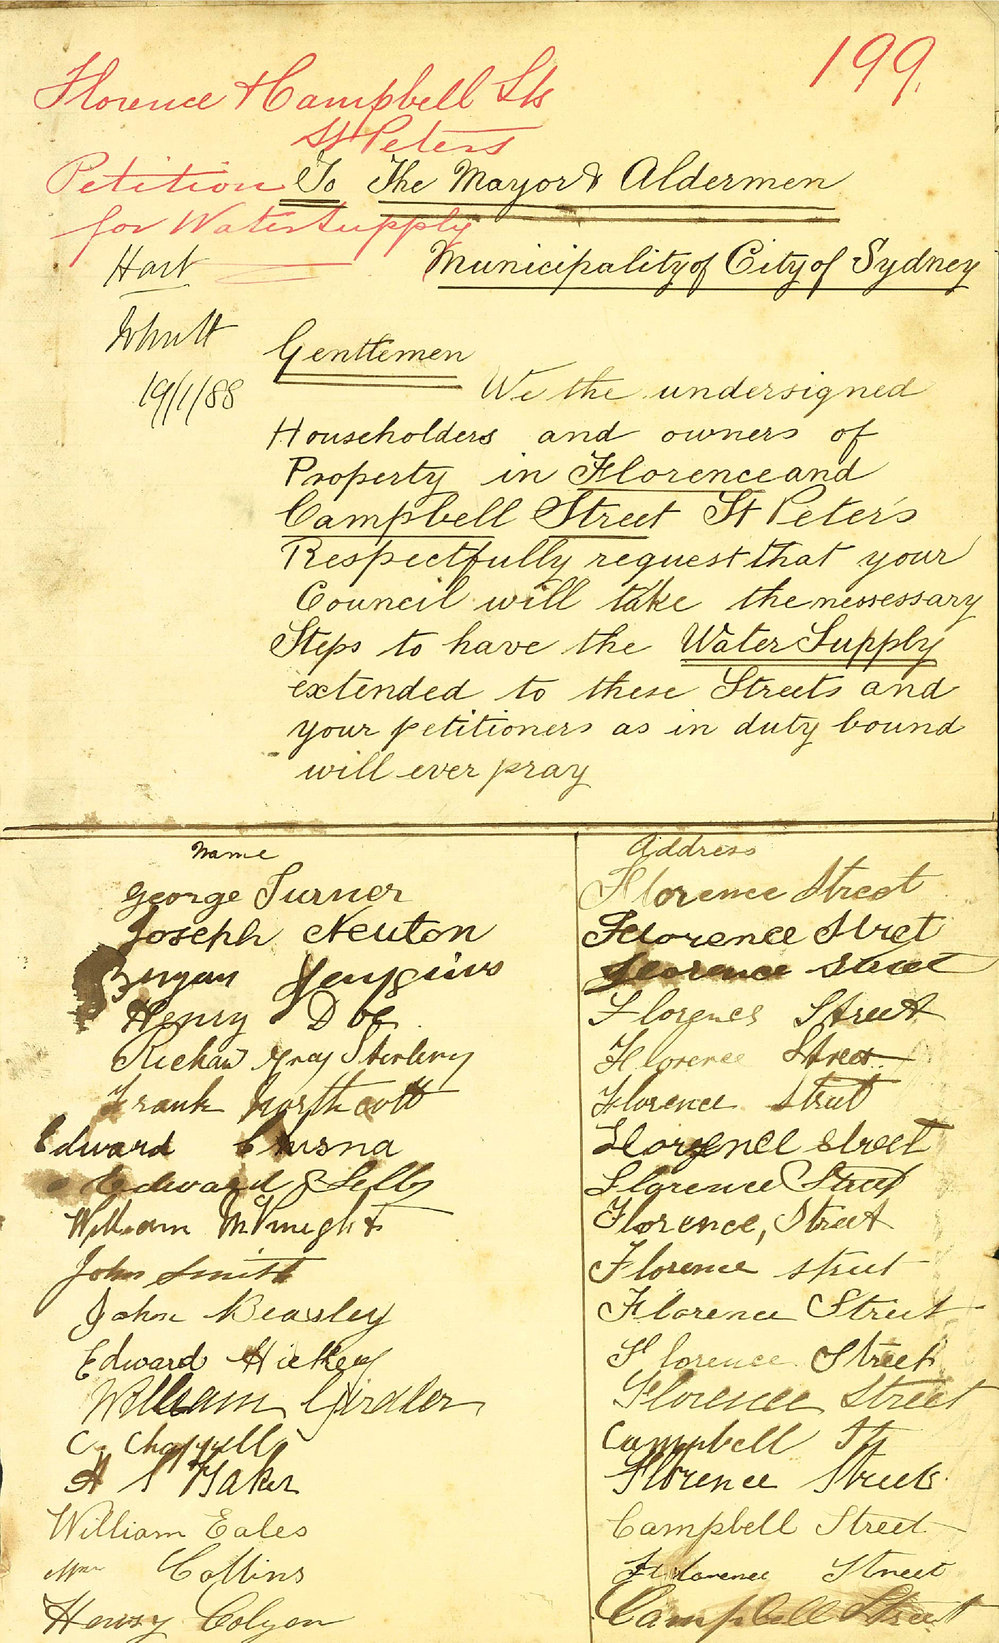 199.
Florence & Campbell Sts
St Peters
Petition
for Water Supply
To The Mayor & Aldermen
Municipality of City of Sydney
Hart
19/1/88
Gentlemen
We the undersigned
Householders and owners of
Property in Florence and
Campbell Street St Peters
Respectfully request that your
Council will take the nessessary
Steps to have the Water Supply
extended to these Streets and
your petitioners as in duty bound
will ever pray
Name Address
George Turner Florence Street
Joseph Newton Florence Stret
Jenkins Florence Street
Henry Doe Florence Street
Richard Gray Stirling Florence Street
Frank Northcott Florence Street
Edward Florence Street
Edward Selby Florence Street
William McKnight Florence, Street
John Smith Florence street
John Beasley Florence Street
Edward Hickey Florence Street
William Girdler Florence Street
C. Chappell Campbell St
H S Baker Florence Street
William Eales Campbell Street
Mrs Collins Florence Street
Henry Colyon Campbell Street